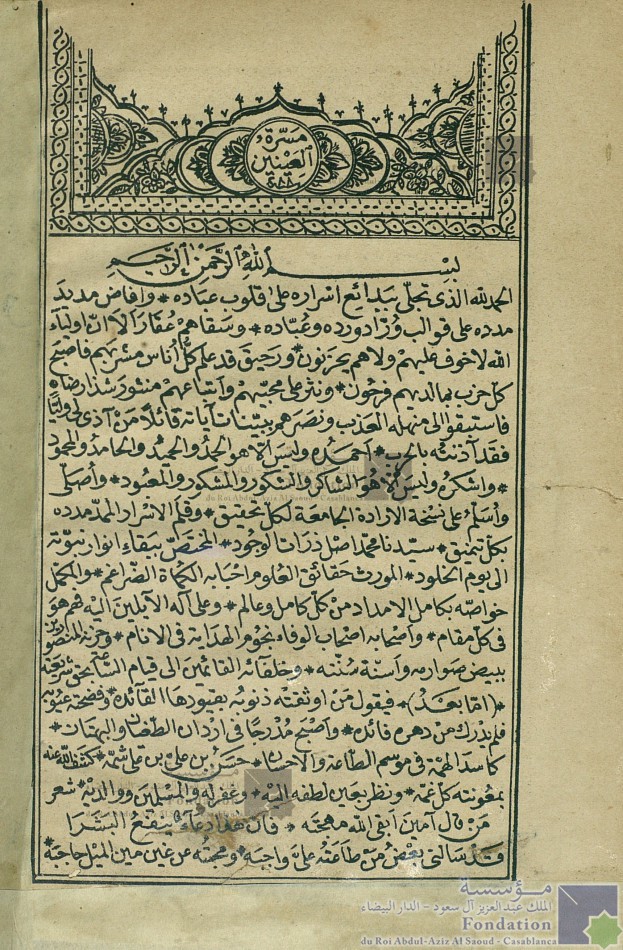 مسرّة
العينين
بسم الله الرحمن الرحيم
الحمد لله الذى تجلى ببدائع اسراره على قلوب عبّاده * وافاض مديد
مدده على قوالب ورّاد ورده وعبّاده * وسقاهم عقار الا انّ اولياء
الله لا خوف عليهم ولا هم يحزنون * ورحيق قد علم كلّ أناس مشربهم فاصبح
كلّ حزب بما لديهم فرحون * ونثر على محبيهم واتباعهم منشور شذا رضاه
فاستبقوا الى منهله العذب ونصرهم ببيّنات آياته قائلاً من آذى لى وليّا
فقد آذنته بالحرب * احمده وليس الا هو الحمد والحميد والحامد والمحمود
* واشكره وليس الا هو الشاكر والشكور والمشكور والمعبود * وأصلّى
وأسلّم على نسخة الارادة الجامعة لكلّ تحقيق * وقلم الاسرار الممدّ مدده
بكلّ تنميق * سيّدنا محمد اصل ذرات الوجود * المختصّ ببقاء انوار نبوّته
الى يوم الخلود * المورث حقائق العلوم احبابه الكماة الضراغم * والمكمل
خواصّه بكامل الامداد من كلّ كامل وعالم * وعلى آله الآيلين اليه فهم هو
فى كلّ مقام * واصحابه اصحاب الوفاء نجوم الهداية فى الانام * وحزبه المنصورين
ببيض صوارمه وأسنّة سُنّته * وخلفائه القائمين الى قيام الساعة بحق شريعته
(امّا بعد) * فيقول من اوثقته ذنوبه بقيودها القائده * وفضحته عيوبه
فلم يدرك من دهره فائده * واصبح مدرجًا فى اردان الطغيان والبهتان *
كاسد الهمّة فى موسم الطاعة والاحسان * حسن بن على بن على شمّه * كشف الله عنه
بمعونته كلّ غمّه * ونظر بعين لطفه اليه * وغفر له والمسلمين ووالديه * شعر
من قال آمين ابقى الله مهجته * فانّ هذا دعاء ينفع البشرا
فقد سالنى بعض من طاعته علىّ واجبة * ومحبته عن غين مين الميل حاجبة *
مؤسسة
الملك عبد العزيز آل سعود - الدار البيضاء
Fondation
du Roi Abdul-Aziz Al Saoud - Casablanca